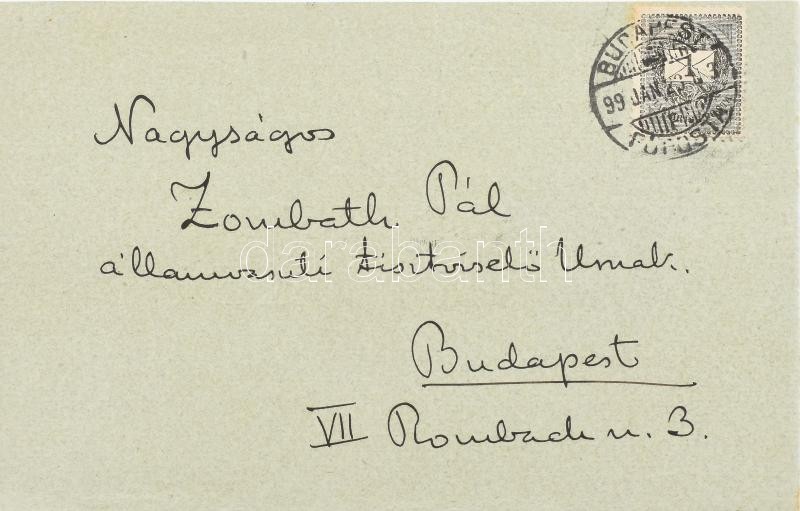 BUDAPEST
1
99 JAN
FŐPOSTA
Nagyságos
Zombath Pál
államvasuti tisztviselő Urnak.
darabanth
Budapest
VII Rombach u. 3.